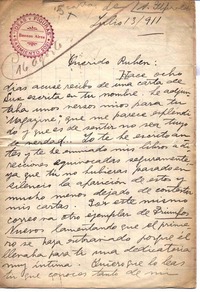 Buenos Aires
Julio 13/911
Querido Rubén:
Hace ocho
dias acusé recibo de una carta que
escrita en tu nombre,
unos versos mios para tu
Magazine, que me parece esplendi-
do y que es de sentir no sea
verdad. Yo te he escrito an-
tes y te he enviado mis libros a di-
recciones equivocadas seguramente
ya que tú no hubieras pasado en
silencio la aparicion de estos y
mucho menos dejado de contestar
mis cartas. Por este mismo
correo va otro ejemplar de Triunfos
Nuevos lamentando que el prime-
ro se haya extraviado porque él
llevaba para tí una dedicatoria
muy intima. Quiero que lo leas
tu que conoces tanto de mi